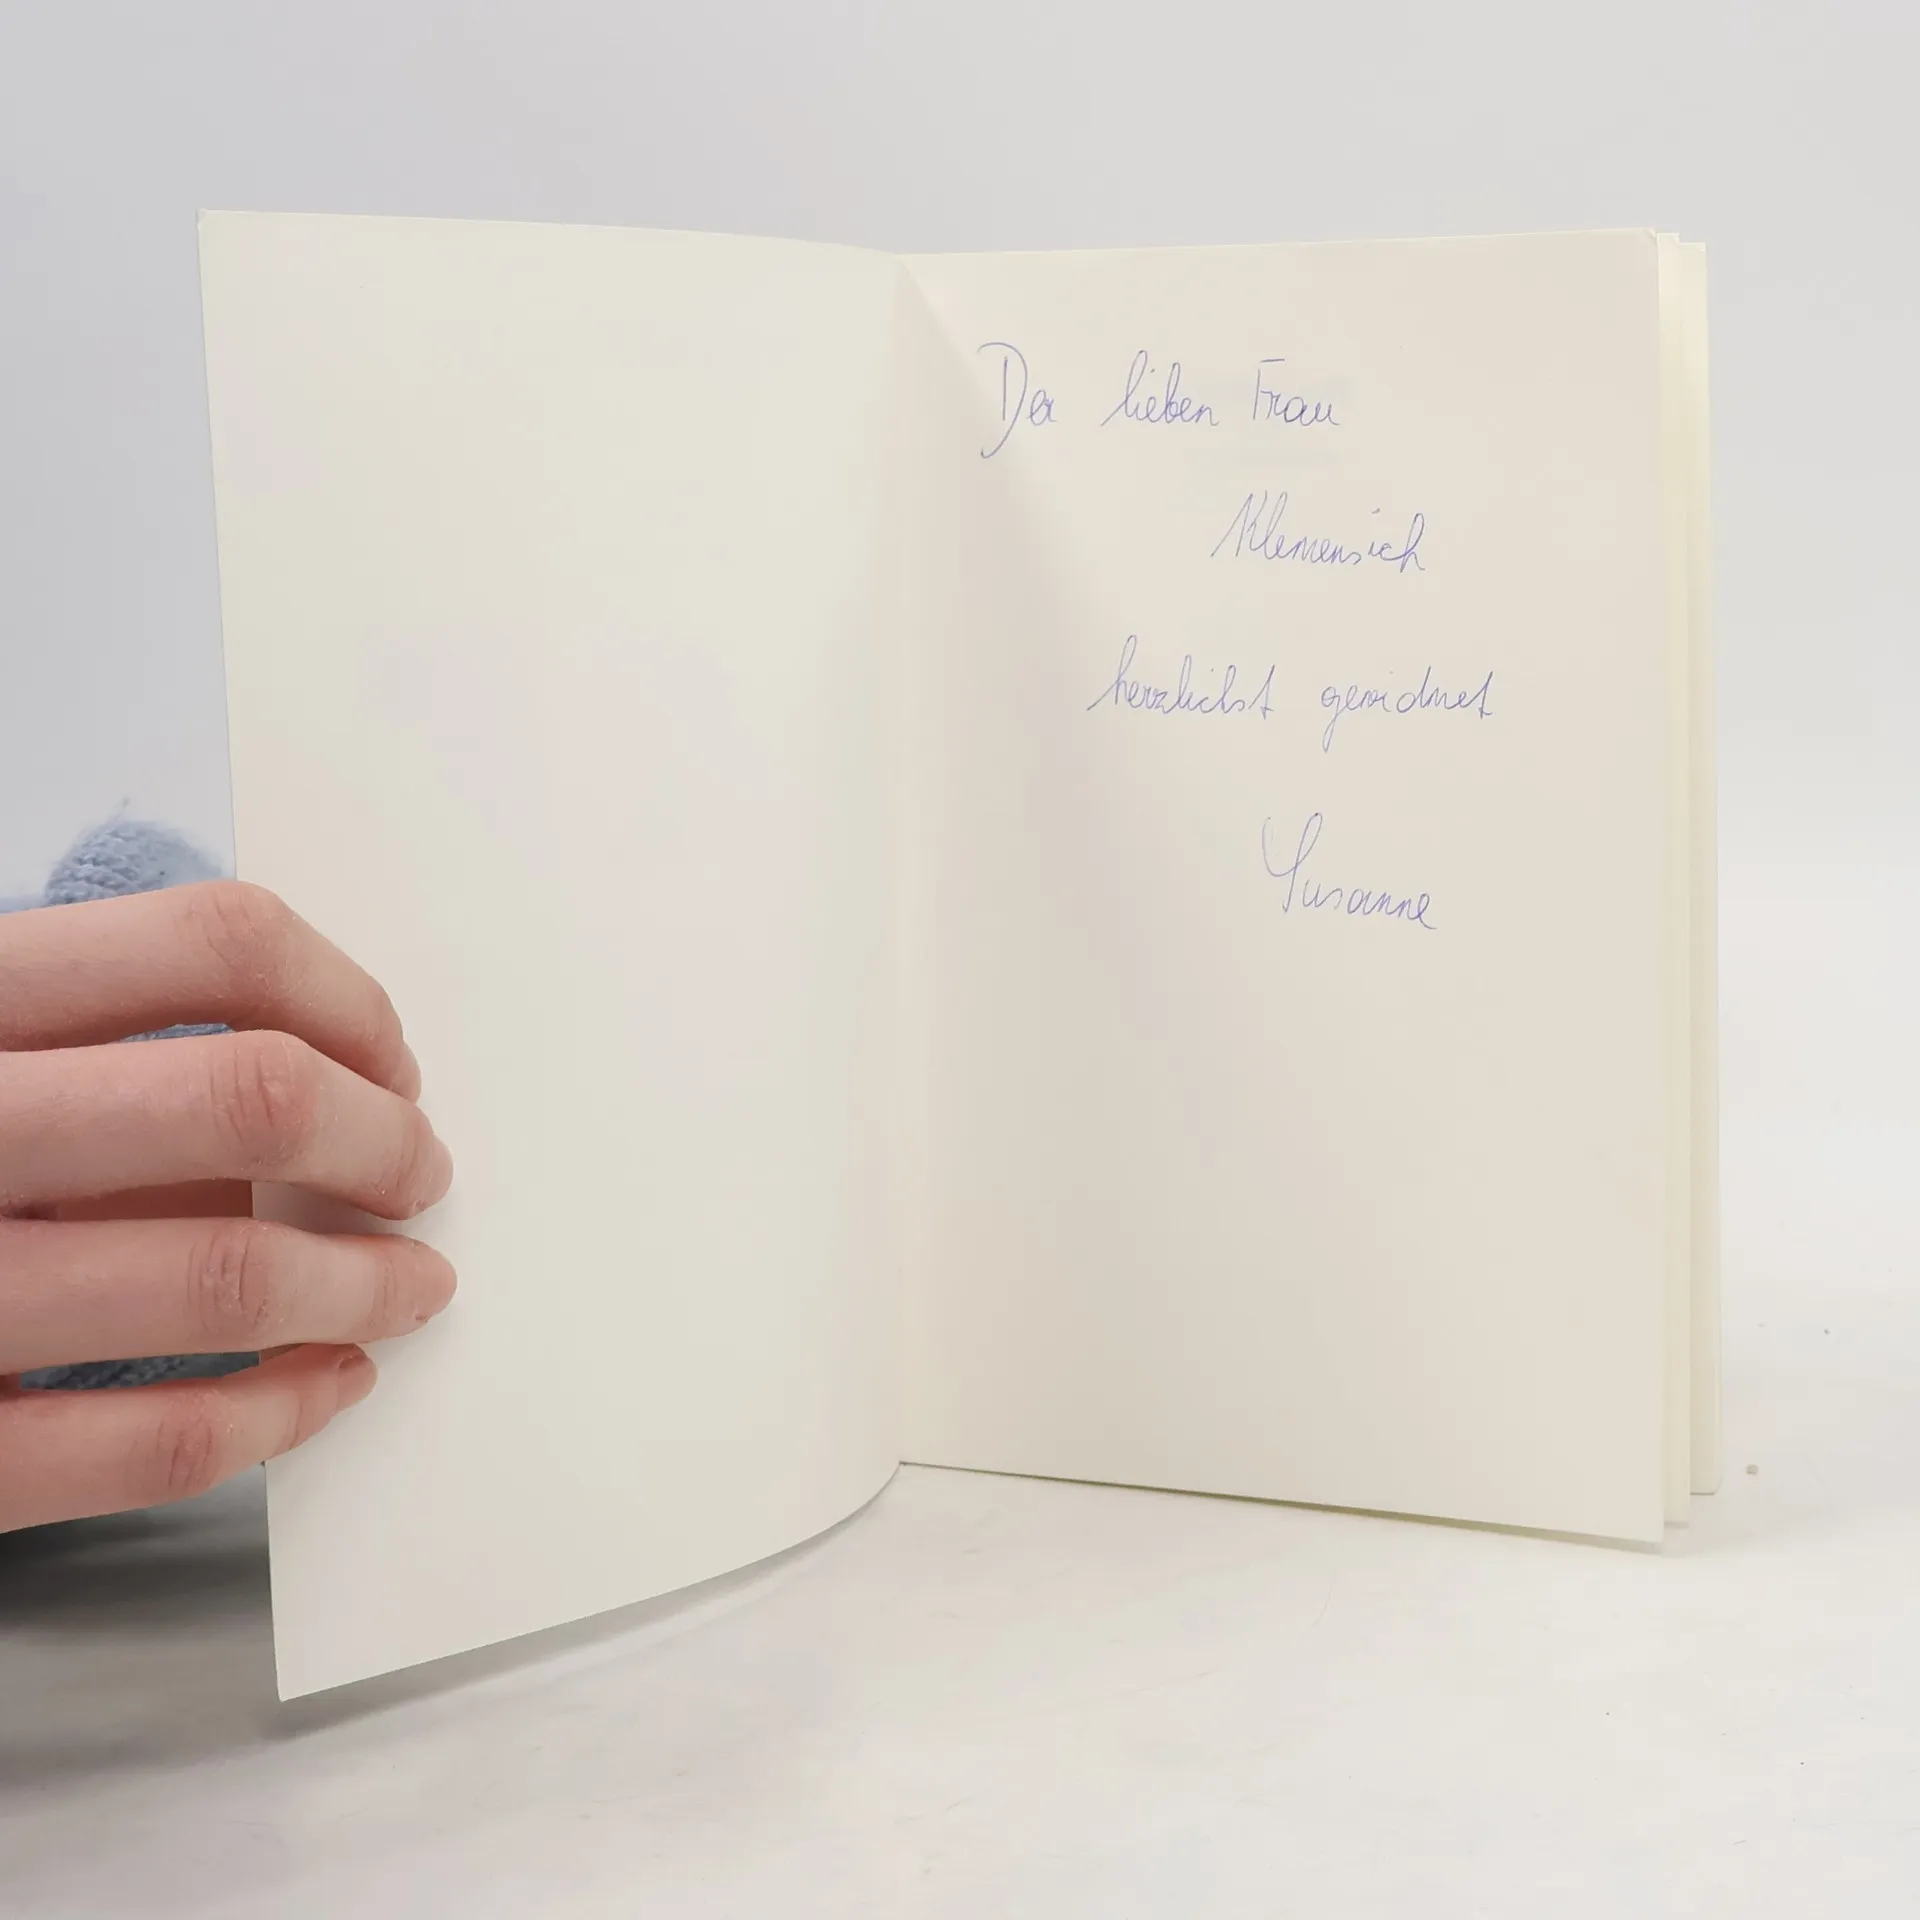 Der lieben Frau
Klemensich
herzlichst gewidmet
Susanne